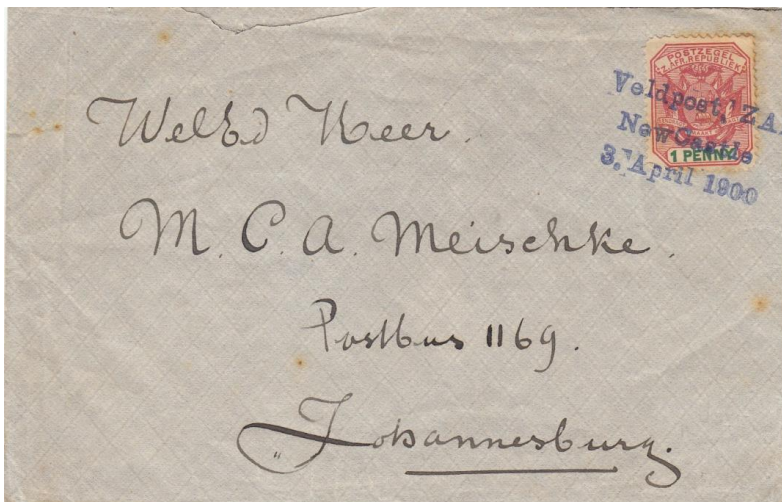 POSTZEGEL
Z. AFR. REPUBLIEK
Veldpost, ZA
NewCastle
3. April 1900
1 PENNY
WelEd Heer.
M. C. A. Meischke.
Postbus 1169.
Johannesburg.